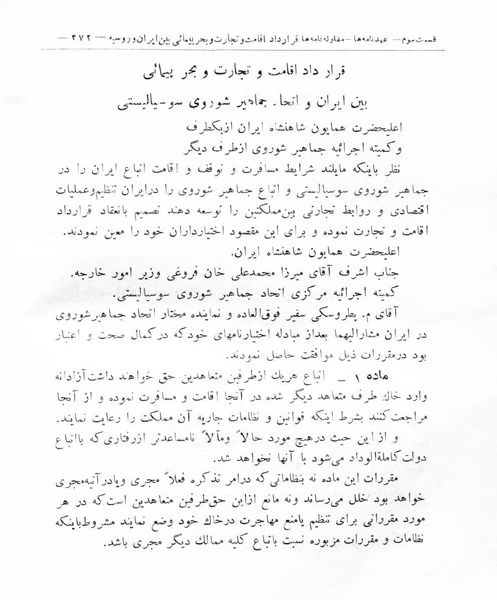 قسمت سوم — عهدنامه‌ها — مقاوله نامه‌ها قرارداد اقامت و تجارت و بحر پیمائی بین ایران و روسیه — ۴۷۲ —
قرار داد اقامت و تجارت و بحر پیمائی
بین ایران و اتحاد جماهیر شوروی سوسیالیستی
اعلیحضرت همایون شاهنشاه ایران ازیکطرف
و کمیته اجرائیه جماهیر شوروی ازطرف دیگر
نظر باینکه مایلند شرایط مسافرت و توقف و اقامت اتباع ایران را در
جماهیر شوروی سوسیالیستی و اتباع جماهیر شوروی را درایران تنظیم وعملیات
اقتصادی و روابط تجارتی بین مملکتین را توسعه دهند تصمیم بانعقاد قرارداد
اقامت و تجارت نموده و برای این مقصود اختیارداران خود را معین نمودند.
اعلیحضرت همایون شاهنشاه ایران.
جناب اشرف آقای میرزا محمدعلی خان فروغی وزیر امور خارجه.
کمیته اجرائیه مرکزی اتحاد جماهیر شوروی سوسیالیستی.
آقای م. پطروسکی سفیر فوق‌العاده و نماینده مختار اتحاد جماهیر شوروی
در ایران مشارالیهما بعداز مبادله اختیارنامهای خودکه درکمال صحت و اعتبار
بود درمقررات ذیل موافقت حاصل نمودند.
ماده ۱ — اتباع هریک ازطرفین متعاهدین حق خواهند داشت آزادانه
وارد خاك طرف متعاهد دیگر شده در آنجا اقامت و مسافرت نموده و از آنجا
مراجعت کنند بشرط اینکه قوانین و نظامات جاریه آن مملکت را رعایت نمایند.
و از این حیث درهیچ مورد حالاً ومآلاً نامساعدتر ازرفتاری که بااتباع
دولت کاملةالوداد می‌شود با آنها نخواهد شد.
مقررات این ماده نه بنظاماتی که درامر تذکره فعلاً مجری ویادرآتیه مجری
خواهد بود خلل می‌رساند ونه مانع ازاین حق طرفین متعاهدین است که در هر
مورد مقرراتی برای تنظیم یامنع مهاجرت درخاك خود وضع نمایند مشروط باینکه
نظامات و مقررات مزبوره نسبت باتباع کلیه ممالك دیگر مجری باشد.